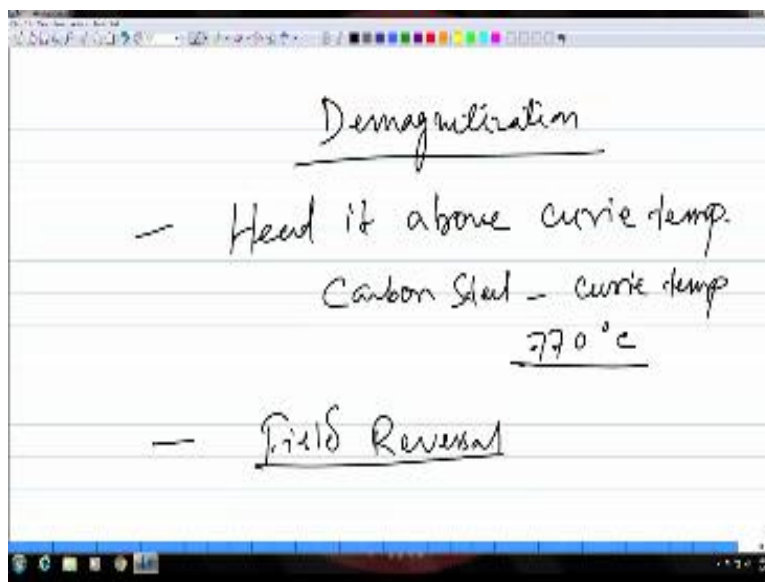 Demagnetization
— Heat it above curie temp.
Carbon Steel - curie temp
770°C
— Field Reversal